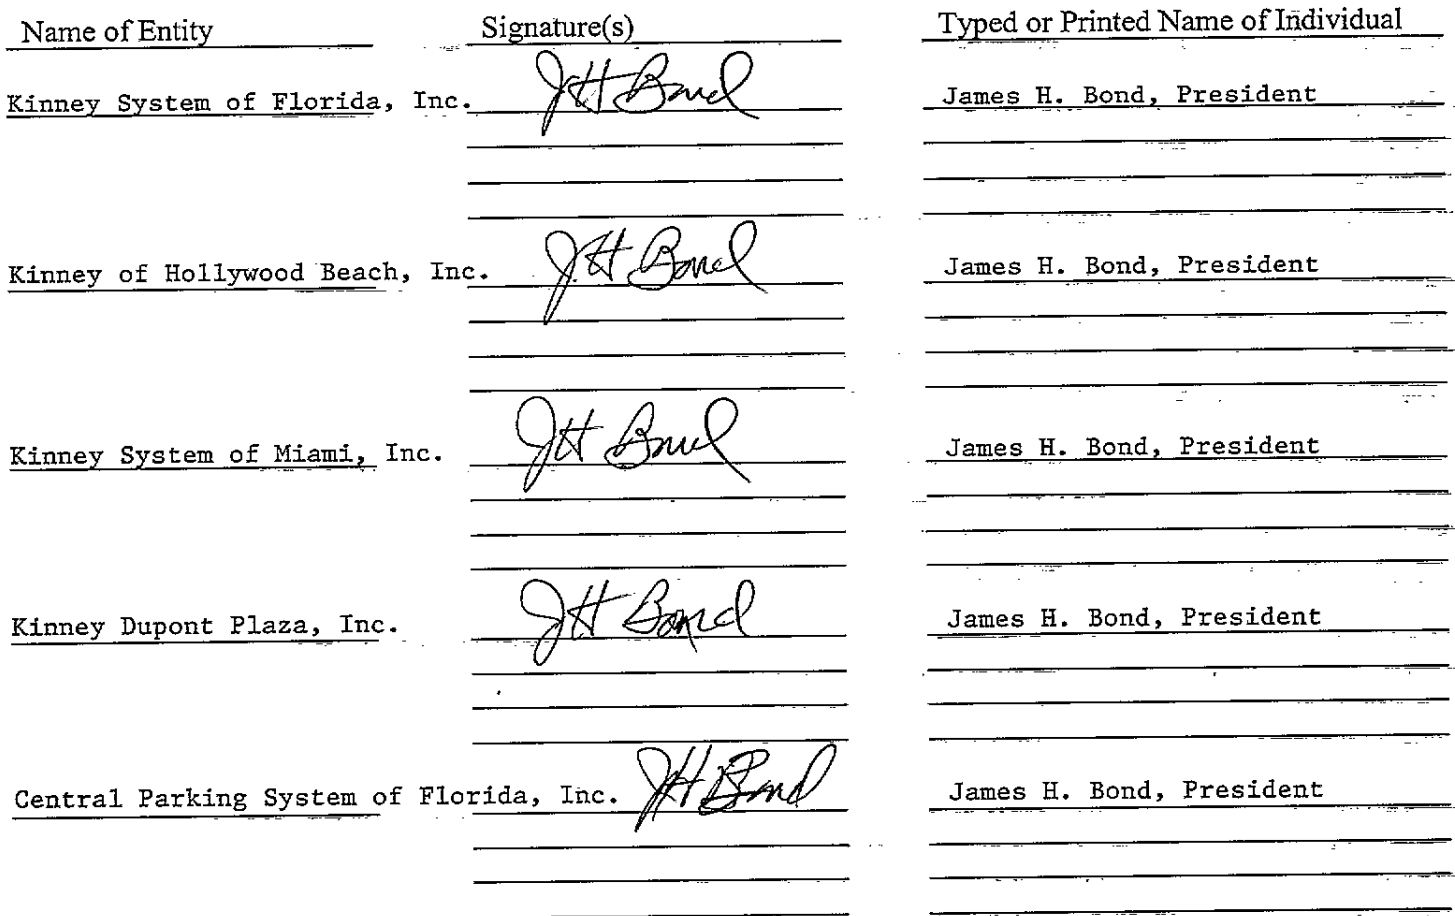 Name of Entity Signature(s) Typed or Printed Name of Individual
Kinney System of Florida, Inc. JH Bond James H. Bond, President
Kinney of Hollywood Beach, Inc. JH Bond James H. Bond, President
Kinney System of Miami, Inc. JH Bond James H. Bond, President
Kinney Dupont Plaza, Inc. JH Bond James H. Bond, President
Central Parking System of Florida, Inc. JH Bond James H. Bond, President